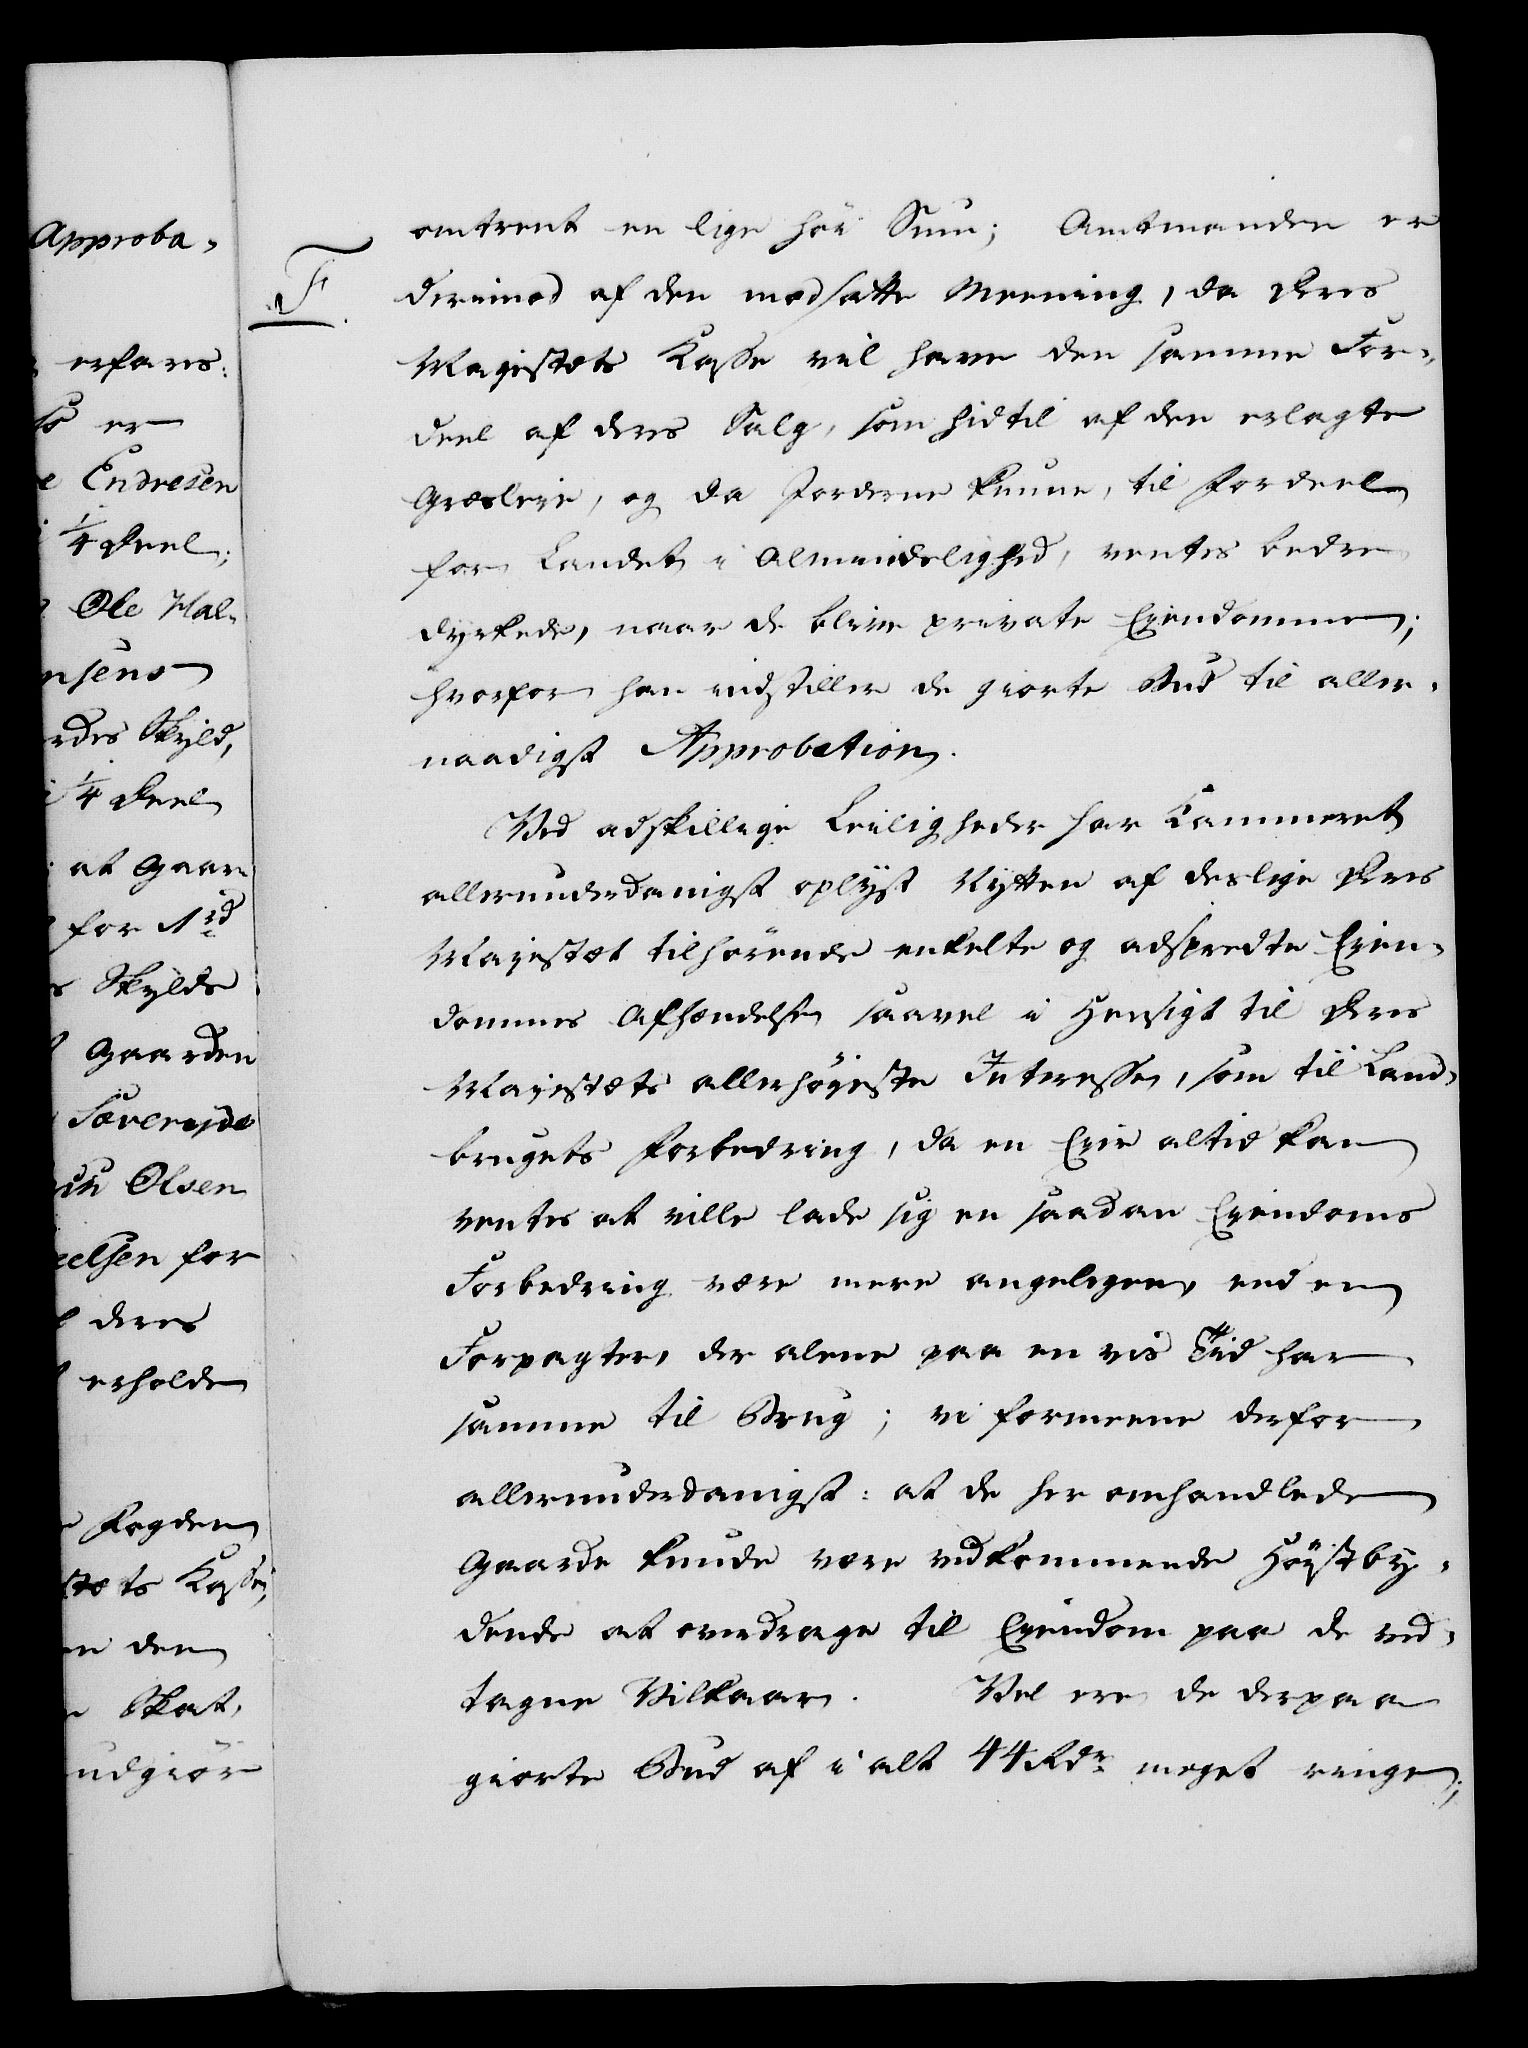 Approba-
erfares:
so er
e Endresen
i 1/4 Deel;
Ole Hal-
nsens
rdes Skyld,
i 1/4 Deel
at Gaar-
for 1 rd
Skylds
Gaarden
Søvereide
Olsen
eelsen for
deres
erholde
Fogden
stæts Kasse,
den
Skat,
udgiör
F.
omtrent en lige höi Sum; Amtmanden er
derimod af den modsatte Meening, da Deres
Majestæts Kasse vil have den samme For-
deel af deres Salg, som hidtil af den erlagte
Græsleie, og da Jorderne kunne, til Fordeel
for Landet i Almindelighed, ventes bedre
dyrkede, naar de blive private Eiendomme;
hvorfor han indstiller de giorte Bud til aller-
naadigst Approbation.
Ved adskillige Leiligheder har Kammeret
allerunderdanigst oplyst Nytten af deslige Deres
Majestæt tilhörende enkelte og adspredte Eien-
dommes Afhændelse saavel i Hensigt til Deres
Majestæts allerhöieste Interesse, som til Land-
brugets Forbedring, da en Eier altid kan
ventes at ville lade sig en saadan Eiendoms
Forbedring være mere angelegen, end en
Forpagter, der alene paa en vis Tid har
samme til Brug; vi formeene derfor
allerunderdanigst: at de her omhandlede
Gaarde kunde være vedkommende Höistby-
dende at overdrage til Eiendom paa de ved-
tagne Vilkaar. Vel ere de derpaa
giorte Bud af i alt 44 Rdr meget ringe;